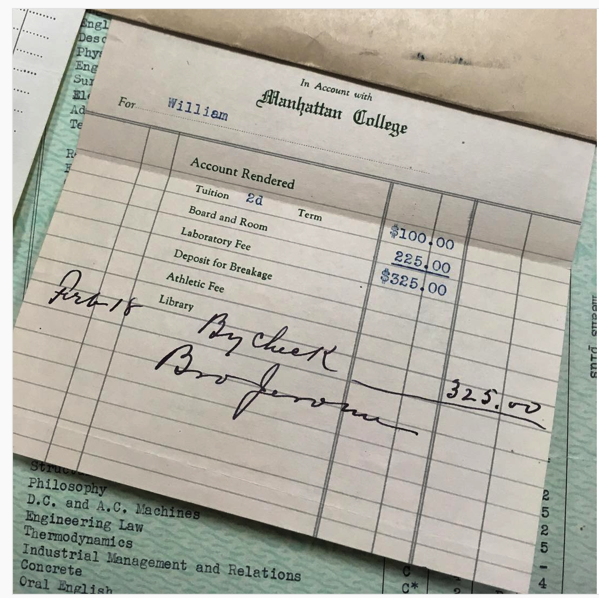 Engl
Desc
Phy
Eng
Sur
El
Ad
Te
R
In Account with
Manhattan College
For William
Account Rendered
Tuition 2d Term $100.00
Board and Room 225.00
Laboratory Fee $325.00
Deposit for Breakage
Athletic Fee
Library
Feb 18 By check 325.00
Bro Jerome
Struc
Philosophy
D.C. and A.C. Machines
Engineering Law
Thermodynamics
Industrial Management and Relations
Concrete
Oral English
2
5
2
5
-
4
C
C* 2